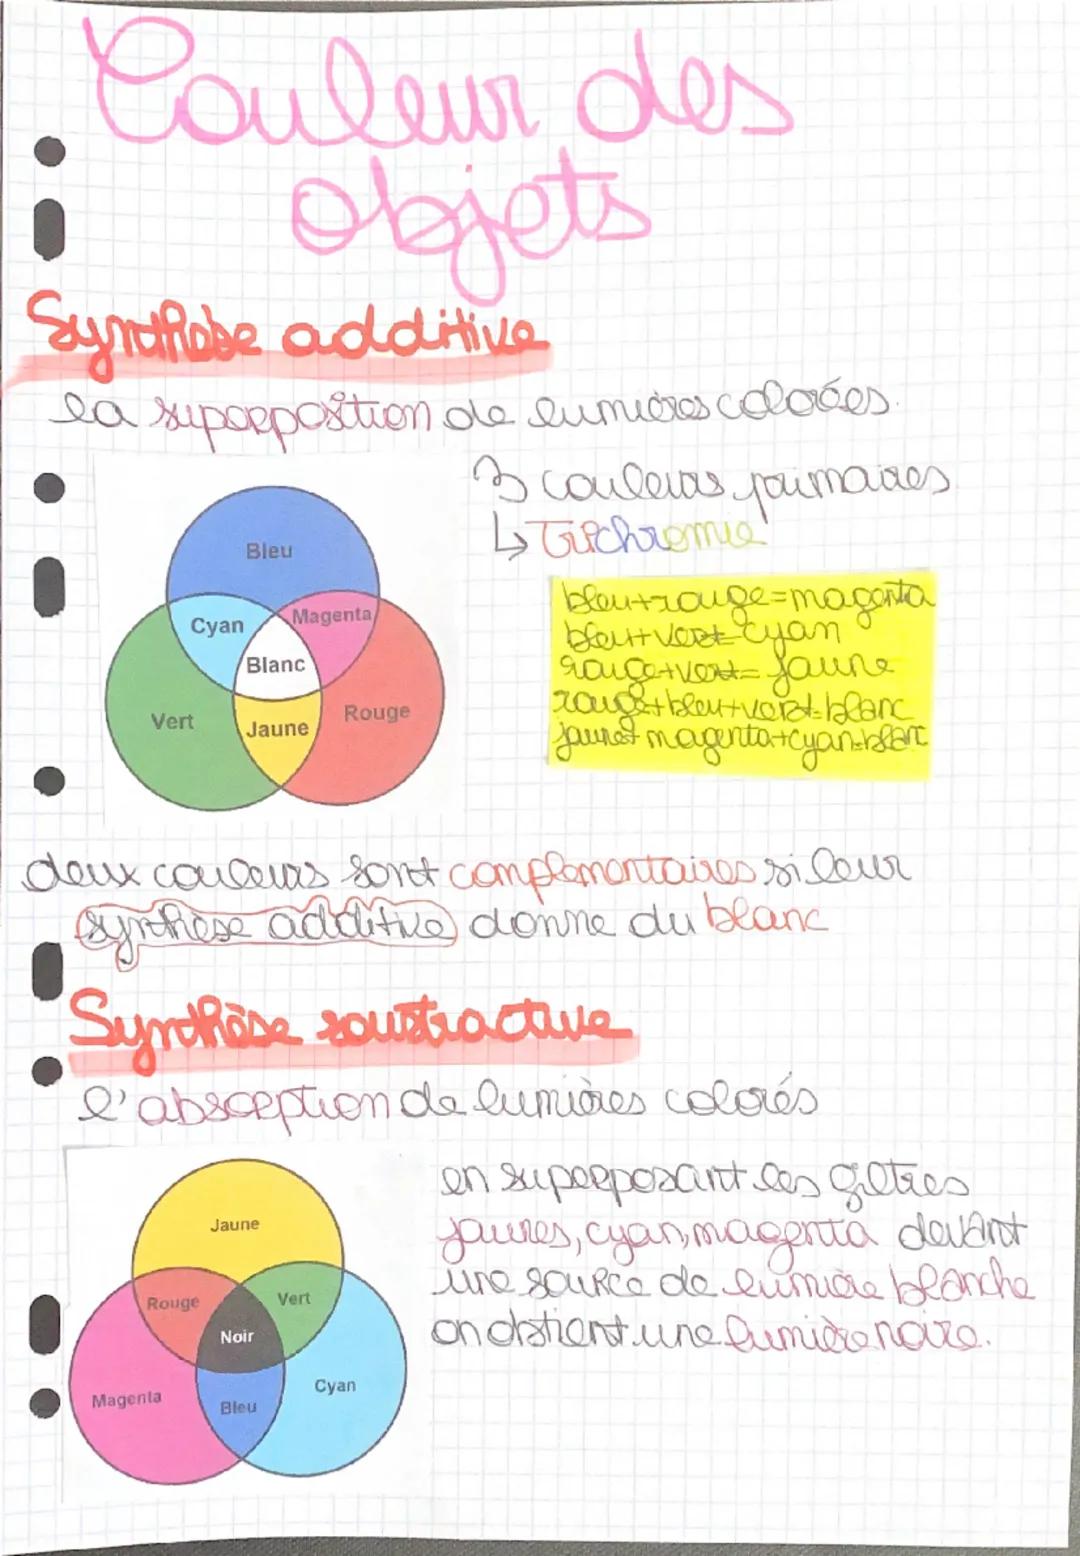 Couleur des
objets
Synthèse additive
la superposition de lumières colorées.
Bleu
Cyan
Magenta
Blanc
Vert
Jaune
Rouge
3 couleurs primaires
↳ Trichromie
bleu+rouge=magenta
bleu+vert=cyan
rouge+vert=jaune
rouge+bleu+vert=blanc
jaune+magenta+cyan=blanc
deux couleurs sont complémentaires si leur
synthèse additive donne du blanc
Synthèse soustractive
l'absorption de lumières colorés
Jaune
Rouge
Vert
Noir
Magenta
Bleu
Cyan
en superposant les filtres
jaunes, cyan, magenta devant
une source de lumière blanche
on obtient une lumière noire.